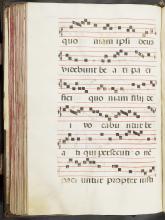 quo niam ipsi deus
videbunt be a ti paci
fici quo niam filij de
i vo cabuntur be
a ti qui persecuti o ne
paci untur propter iusti